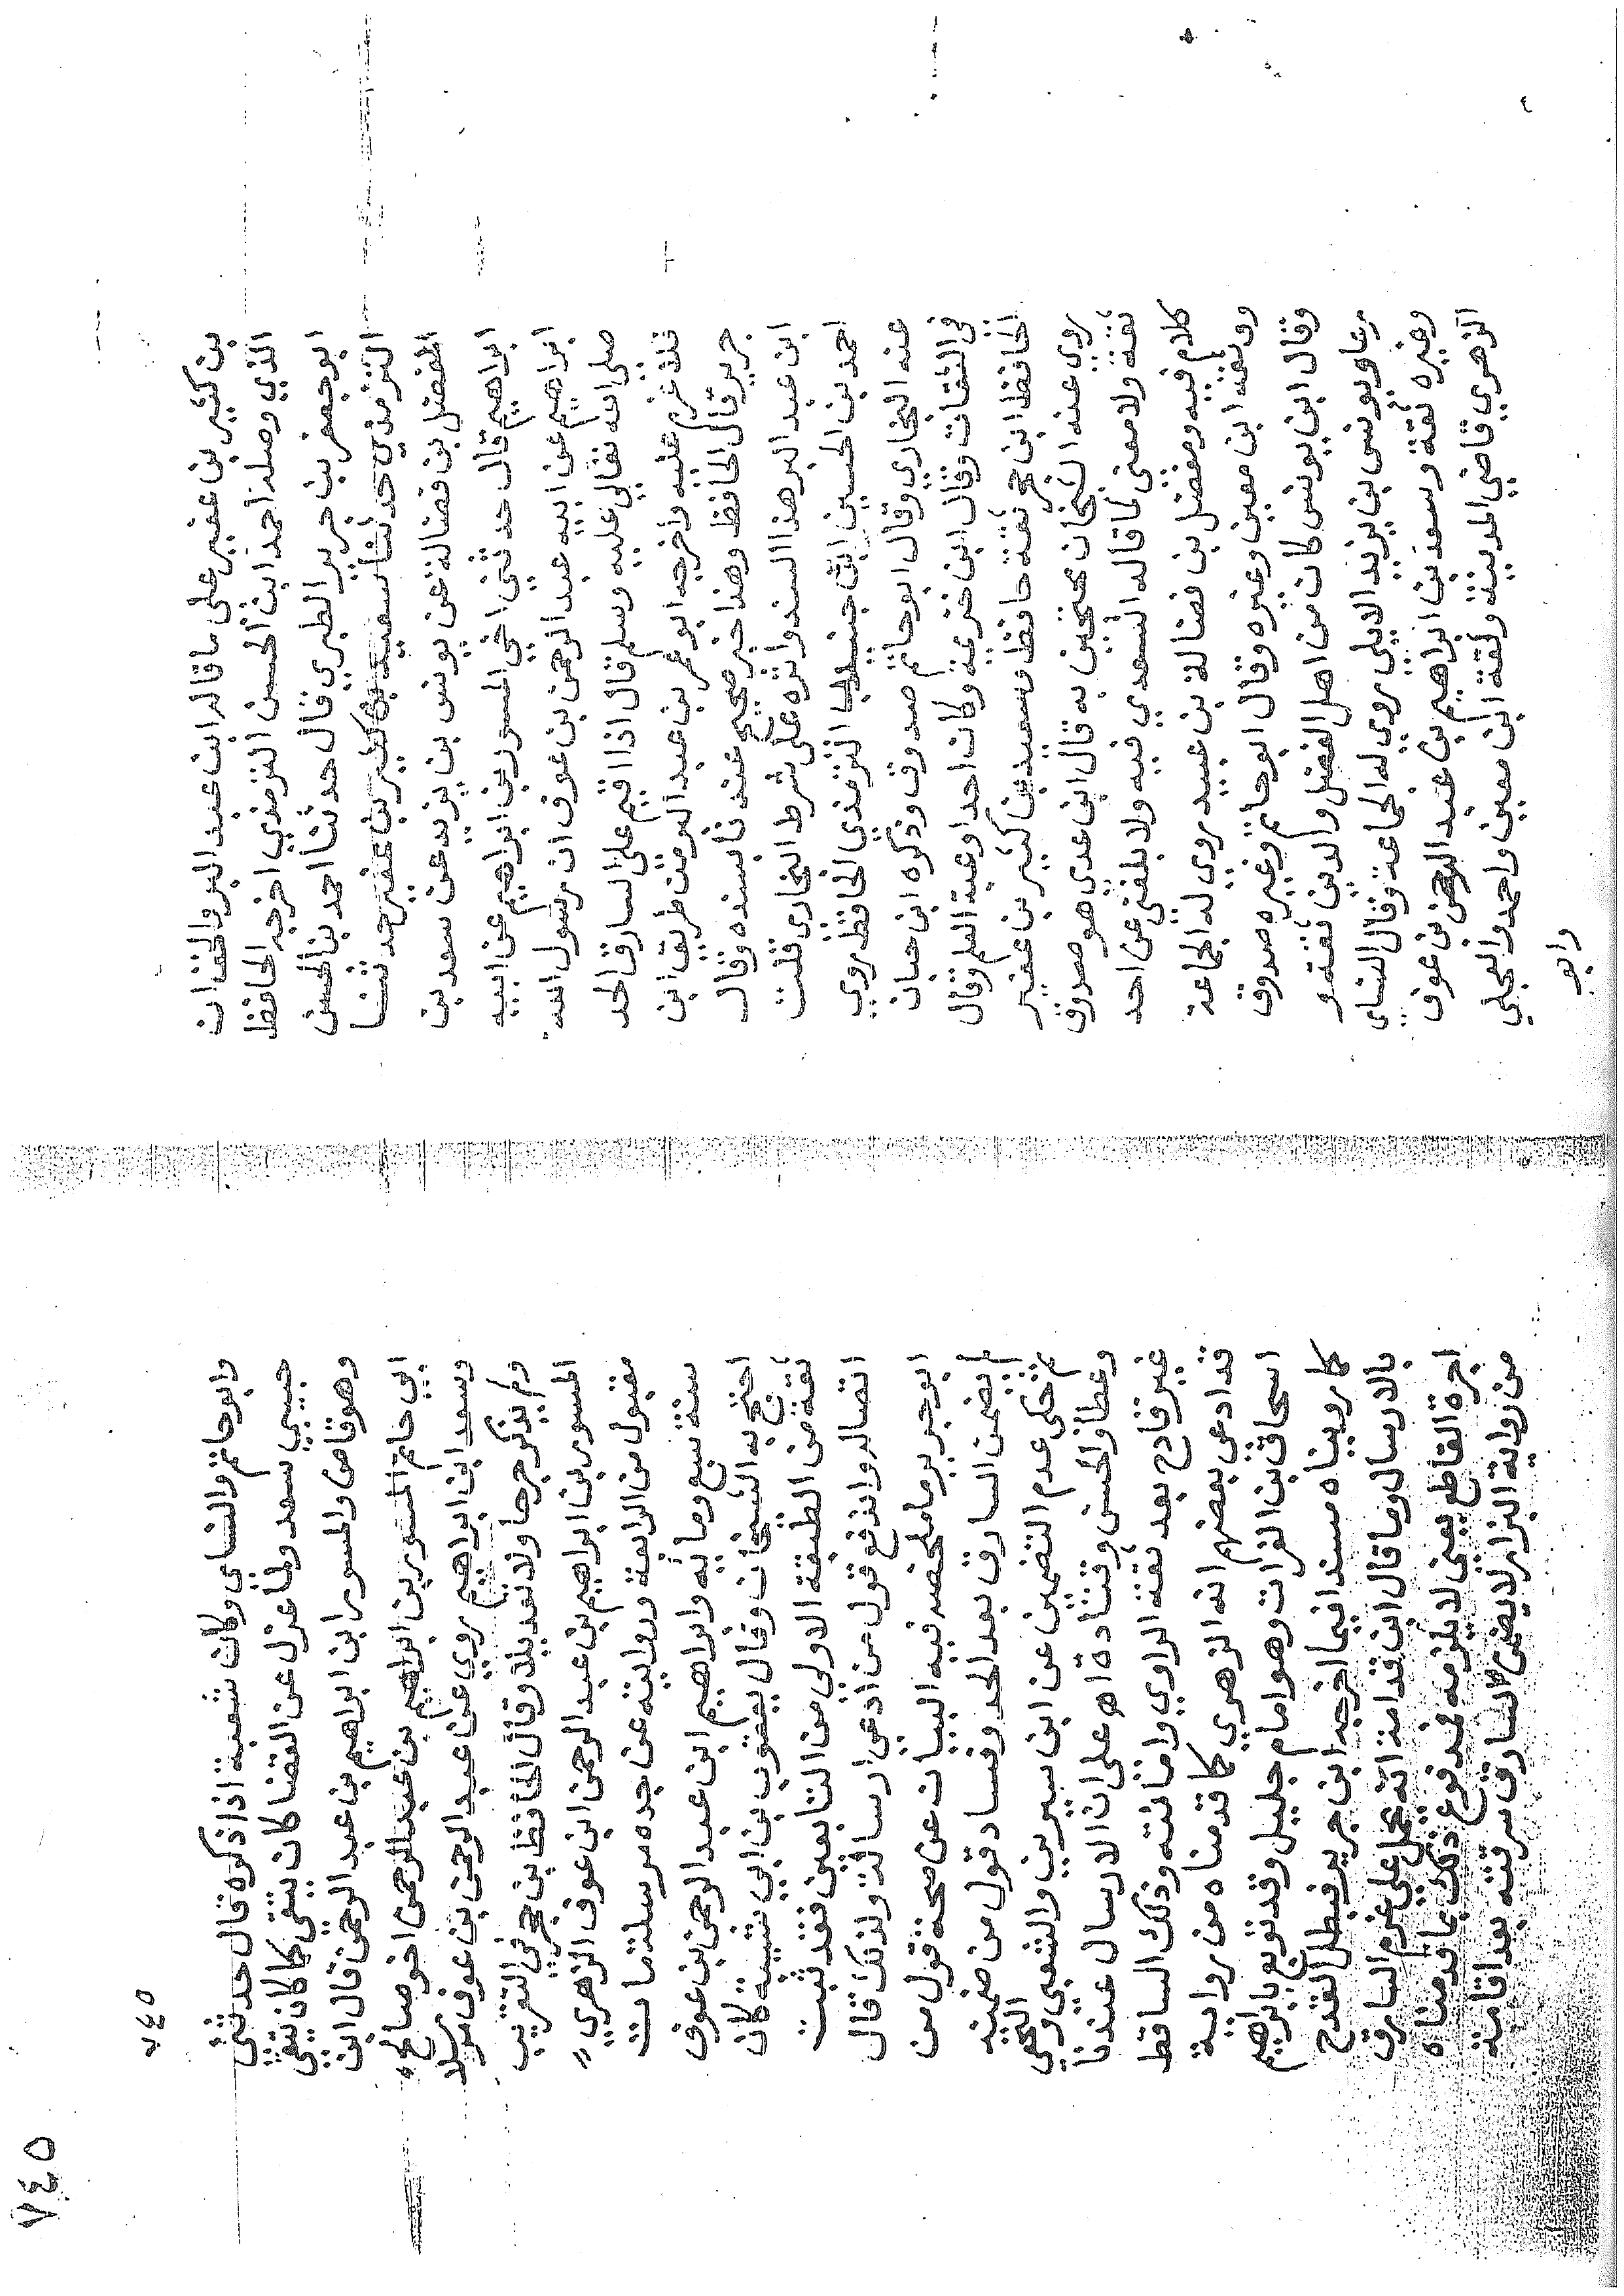 بن كثير بن عفير على ما قاله ابن عبد البر والحفنات
الذي وصله احمد ابن الحسن الترمذي اخرجه الحافظ
ابو جعفر بن جرير الطبري قال حدثنا احمد بن الحسن
الترمذي حدثنا سعيد بن كثير بن عفير حدثنا
المفضل بن فضالة عن يونس بن يزيد عن سعد بن
ابراهيم قال حدثني اخي المسور بن ابراهيم عن ابيه
ابراهيم عن ابيه عبد الرحمن بن عوف ان رسول الله
صلى الله تعالى عليه وسلم قال اذا اقيم على السارق الحد
فلا غرم عليه واخرجه ابو عمر بن عبد البر من طريق ابن
جرير قال الحافظ وهذا خبر صحيح عندنا بسنده وقال
ابن عبد البر هذا السند واثره على شرط البخاري قلت
احمد بن الحسين ابن جنيدب الترمذي الحافظ روي
عنه البخاري وقال ابو حاتم صدوق وذكره ابن حبان
في الثقات وقال ابن خزيمة وكان احد اوعية العلم وقال
الحافظ ابن حجر ثقة حافظ وسعيد بن كثير بن عفير
روي عنه الشيخان محتجين به قال ابن عدي هو صدوق
ثقة ولا معنى لما قاله السعدي فيه ولا بلغني عن احد
كلام فيه ومفضل بن فضالة بن عبيد روي له الجماعة
ووثقه ابن معين وغيره وقال ابو حاتم وغيره صدوق
وقال ابن يونس كان من اهل الفضل والدين ثقة و
رعا ويونس بن يزيد الايلي روي له الجماعة وقال النساى
وغيره ثقة وسعد بن ابراهيم بن عبد الرحمن بن عوف
الزهري قاضي المدينة وثقه ابن معين واحمد والعجلي
وابو
٧٤٥
٧٤٥
وابو حاتم والنساى وكان شعبة اذا ذكره قال حدثني
حبيبي سعد ولما عزل عن القضا كان يتقى كما كان يتقي
وهو قاض والمسور ابن ابراهيم بن عبد الرحمن قال ابن
ابي حاتم المسور بن ابراهيم بن عبد الرحمن اخو صالح
وسعد ابن ابراهيم روي عن عبد الرحمن بن عوف مرسلا
ولم يذكر جرحا ولا تعديلا وقال الحافظ بن حجر في التقريب
المسور بن ابراهيم بن عبد الرحمن ابن عوف الزهري
مقبول من الرابعة وروايته عن جده مرسلة مات
سنة سبع ومايه وابراهيم ابن عبد الرحمن بن عوف
احتج به الشيخان وقال يعقوب بن ابي شيبة كان
ثقة من الطبقة الاولي من التابعين فقد ثبت
اتصاله واندفع قول من ادعى ارساله ولذلك قال
ابو جرير بو ما ملخصه فيه البيان عن صحة قول من
لم يضمن السارق بعد الحد وفساد قول من ضمنه
ثم حكى عدم التضمين عن ابن سيرين والشعبي والنخعي
وعطا والحسن وقتادة اهـ على ان الارسال عندنا
غير قادح بعد ثقة الراوي وامانته وذلك الساقط
قد ادعى بعضهم انه الزهري كما قدمناه من رواية
اسحاق بن الفرات وهو امام جليل وقد توبع بابراهيم
كما رويناه مسندا فيما اخرجه ابن جرير فبطل القدح
بالارسال وما قال ابن قدامة انه يحمل على غرم السارق
اجرة القاطع يعني لا يلزمه فمدفوع ذلك بما قدمناه
من رواية البزار لا يضمن السارق سرقته بعد اقامة